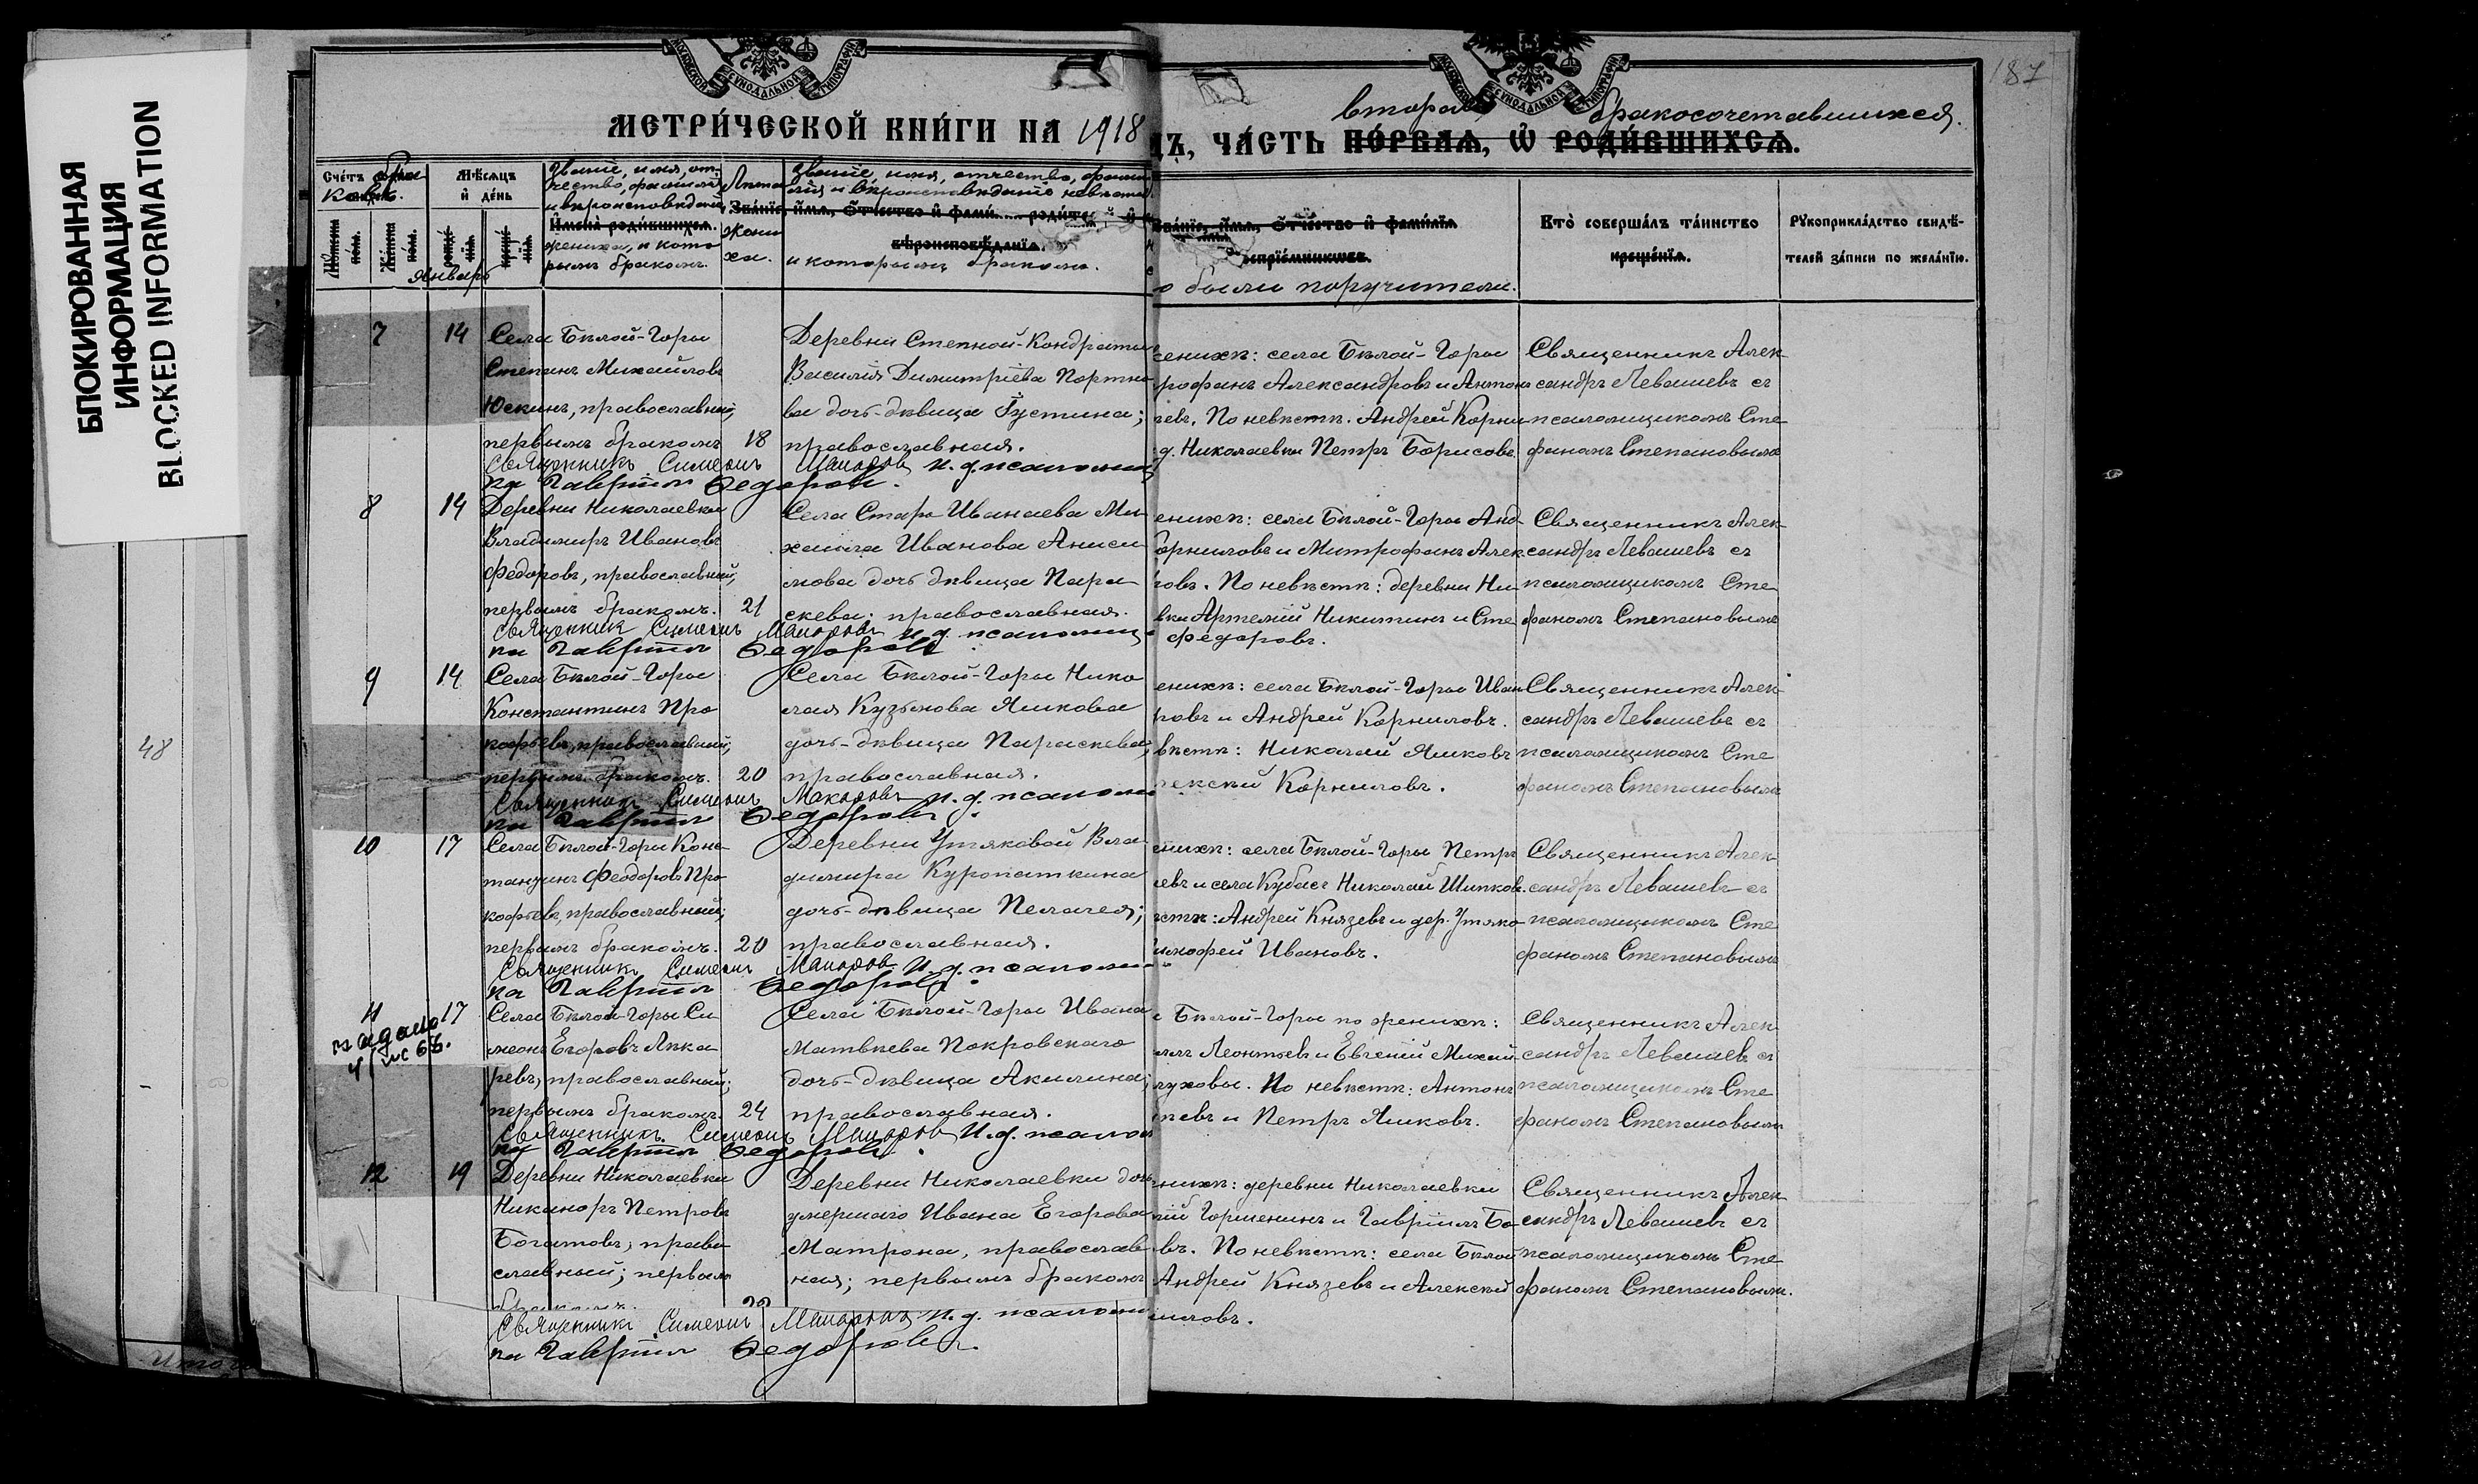 БЛОКИРОВАННАЯ
ИНФОРМАЦИЯ
BLOCKED INFORMATION
187
МЕТРИЧЕСКОЙ КНИГИ НА 1918
ДЪ, ЧАСТЬ ПЕРВАЯ, Ѿ РОДИВШИХСЯ.
вторая бракосочетавшихся.
Счетъ браковъ.
Мѣсяцъ и день
Январь
Званіе, имя, отчество, фамилія и вѣроисповѣданіе жениха, и которымъ бракомъ.
Лѣта жениха.
Званіе, имя, отчество, фамилія и вѣроисповѣданіе невѣсты и которымъ бракомъ.
о были поручители.
Кто совершалъ таинство крещенія.
Рукоприкладство свидѣтелей записи по желанію.
7 14
Села Бѣлой-Горы
Степанъ Михайловъ
Юскинъ, православный,
первымъ бракомъ 18
Деревни Степной-Кондраты
Василія Димитріева Портно
ва дочь-дѣвица Густина;
православная.
енихѣ: села Бѣлой-Горы
рофанъ Александровъ и Антонъ
евъ. По невѣстѣ. Андрей Корни
д. Николаевки Петръ Борисовъ
Священникъ Алек-
сандръ Левашевъ съ
псаломщикомъ Сте
фаномъ Степановымъ
Священникъ Симеонъ Макаровъ И. д. псаломщи
ка Гавріилъ Ѳедоровъ.
8 14
Деревни Николаевки
Владимиръ Ивановъ
Федоровъ, православный,
первымъ бракомъ. 21
Села Старо Иванаева Ми-
хаила Иванова Аниси
мова дочь дѣвица Пара-
скева; православная.
енихѣ: села Бѣлой-Горы Анд-
орниловъ и Митрофанъ Алек
ровъ. По невѣстѣ: деревни Ни-
вки Артемій Никитинъ и Сте
Федоровъ.
Священникъ Алек-
сандръ Левашевъ съ
псаломщикомъ Сте
фаномъ Степановымъ
Священникъ Симеонъ Макаровъ и. д. псаломщи
ка Гавріилъ Ѳедоровъ.
9 14
Села Бѣлой-Горы
Константинъ Про
кофьевъ, православный;
первымъ бракомъ. 20
Села Бѣлой-Горы Нико
лая Кузьмова Яшкова
дочь-дѣвица Параскева;
православная.
енихѣ: села Бѣлой-Горы Иван
ровъ и Андрей Корниловъ.
вѣстѣ: Николай Яшковъ
лексѣй Корниловъ.
Священникъ Алек-
сандръ Левашевъ съ
псаломщикомъ Сте
фаномъ Степановымъ
Священникъ Симеонъ Макаровъ И. д. псаломщи
ка Гавріилъ Ѳедоровъ.
10 17
Села Бѣлой-Горы Конс-
тантинъ Феодоровъ Про
кофьевъ, православный;
первымъ бракомъ. 20
Деревни Утяковой Вла-
димира Куропаткина
дочь-дѣвица Пелагея;
православная.
енихѣ: села Бѣлой-Горы Петръ
евъ и села Кубасъ Николай Шипков.
ѣстѣ: Андрей Князевъ и дер. Утяко-
имофей Ивановъ.
Священникъ Алек-
сандръ Левашевъ съ
псаломщикомъ Сте
фаномъ Степановымъ
Священникъ Симеонъ Макаровъ И. д. псаломщи
ка Гавріилъ Ѳедоровъ.
11 17
Села Бѣлой-Горы Си
меонъ Егоровъ Лѣка
ревъ, православный;
первымъ бракомъ. 24
Села Бѣлой-Горы Ивана
Матвѣева Покровскаго
дочь-дѣвица Акилина;
православная.
Бѣлой-Горы по женихѣ:
илъ Леонтьевъ и Евгеній Михай-
луховы. По невѣстѣ: Антонъ
ѣевъ и Петръ Яшковъ.
Священникъ Алек-
сандръ Левашевъ съ
псаломщикомъ Сте
фаномъ Степановымъ
Священникъ Симеонъ Макаровъ И. д. псалом
ка Гавріилъ Ѳедоровъ.
12 19
Деревни Николаевки
Никаноръ Петровъ
Богатовъ, право
славный; первымъ
бракомъ.
Деревни Николаевки дочь
умершаго Ивана Егорова
Матрона, православ-
ная; первымъ бракомъ
енихѣ: деревни Николаевки
ій Горшенинъ и Гавріилъ Бо
въ. По невѣстѣ: села Бѣлой
Андрей Князевъ и Алексѣй
иловъ.
Священникъ Алек-
сандръ Левашевъ съ
псаломщикомъ Сте
фаномъ Степановымъ.
Священникъ Симеонъ Макаровъ И. д. псаломщи
ка Гавріилъ Ѳедоровъ.
48